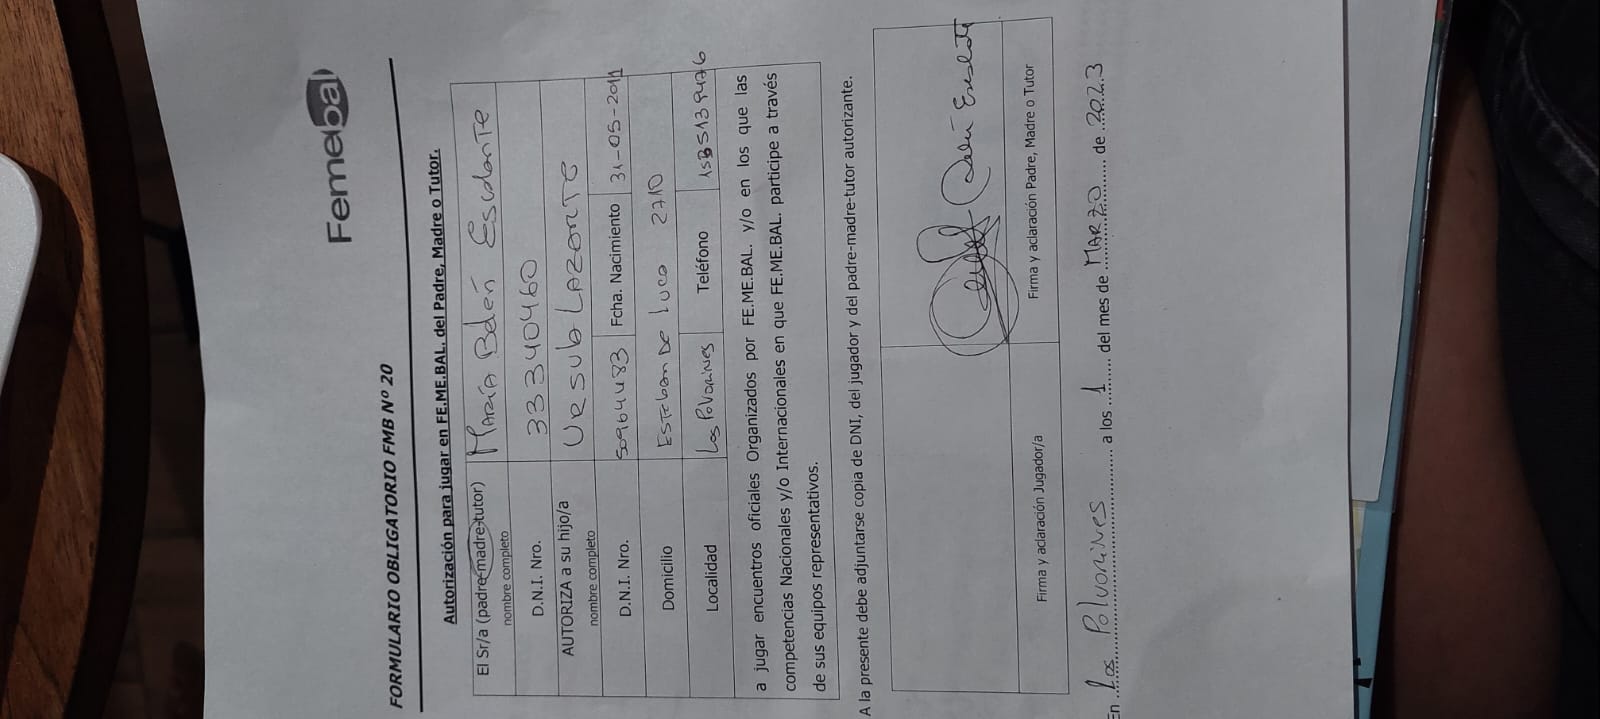 Femebal
FORMULARIO OBLIGATORIO FMB Nº 20
Autorización para jugar en FE.ME.BAL. del Padre, Madre o Tutor.
El Sr/a (padre-madre-tutor) nombre completo MARÍA Belén Escalante
D.N.I. Nro. 33340460
AUTORIZA a su hijo/a nombre completo URSULA LAZARTE
D.N.I. Nro. 50964483 Fcha. Nacimiento 31-05-2011
Domicilio ESTeban De Luca 2710
Localidad Los Polvorines Teléfono
a jugar encuentros oficiales Organizados por FE.ME.BAL. y/o en los que las
competencias Nacionales y/o Internacionales en que FE.ME.BAL. participe a través
de sus equipos representativos.
A la presente debe adjuntarse copia de DNI, del jugador y del padre-madre-tutor autorizante.
Belén Escalante
Firma y aclaración Jugador/a Firma y aclaración Padre, Madre o Tutor
En Los Polvorines a los 1 del mes de MARZO de 2023